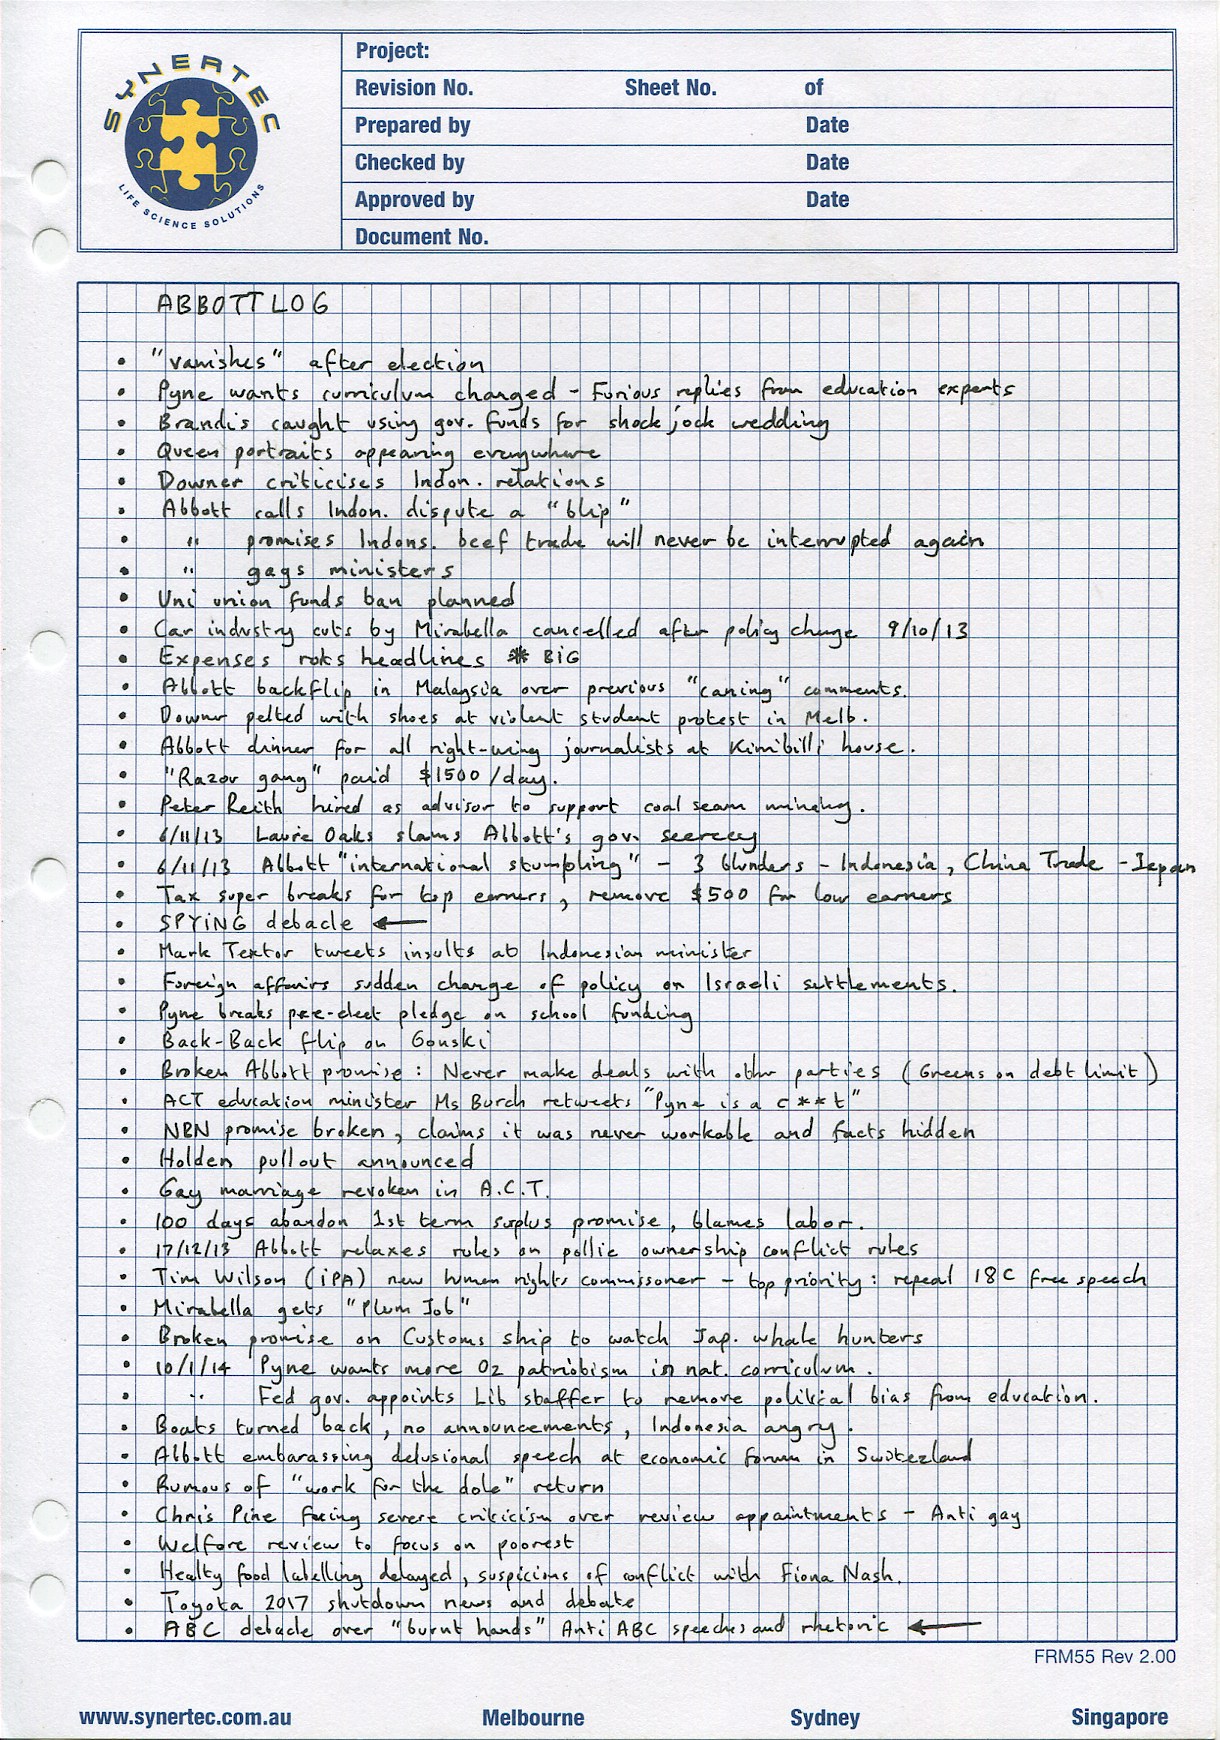 SYNERTEC
LIFE SCIENCE SOLUTIONS
Project:
Revision No. Sheet No. of
Prepared by Date
Checked by Date
Approved by Date
Document No.
ABBOTT LOG
• "vanishes" after election
• Pyne wants curriculum changed - Furious replies from education experts
• Brandis caught using gov. funds for shock jock wedding
• Queen portraits appearing everywhere
• Downer criticises Indon. relations
• Abbott calls Indon. dispute a "blip"
• " promises Indons. beef trade will never be interrupted again
• " gags ministers
• Uni union funds ban planned
• Car industry cuts by Mirabella cancelled after policy change 9/10/13
• Expenses rorts headlines * BIG
• Abbott backflip in Malaysia over previous "caning" comments.
• Downer pelted with shoes at violent student protest in Melb.
• Abbott dinner for all right-wing journalists at Kimibilli house.
• "Razor gang" paid $1500/day.
• Peter Reith hired as advisor to support coal seam mining.
• 6/11/13 Laurie Oaks slams Abbott's gov. secrecy
• 6/11/13 Abbott "international stumpling" - 3 blunders - Indonesia, China Trade - Japan
• Tax super breaks for top earners, remove $500 for low earners
• SPYING debacle ←
• Mark Textor tweets insults at Indonesian minister
• Foreign affairs sudden change of policy on Israeli settlements.
• Pyne breaks pre-elect pledge on school funding
• Back-Back flip on Gonski
• Broken Abbott promise: Never make deals with other parties (Greens on debt limit)
• ACT education minister Ms Burch retweets "Pyne is a c**t"
• NBN promise broken, claims it was never workable and facts hidden
• Holden pullout announced
• Gay marriage revoken in A.C.T.
• 100 days abandon 1st term surplus promise, blames labor.
• 17/12/13 Abbott relaxes rules on pollie ownership conflict rules
• Tim Wilson (iPA) new human rights commissoner - top priority: repeal 18C free speech
• Mirabella gets "Plum Job"
• Broken promise on Customs ship to watch Jap. whale hunters
• 10/1/14 Pyne wants more Oz patriobism in nat. corriculum.
• " Fed gov. appoints Lib staffer to remove political bias from education.
• Boats turned back, no announcements, Indonesia angry.
• Abbott embarassing delusional speech at economic forum in Switezland
• Rumous of "work for the dole" return
• Chris Pine facing severe criticism over review appointments - Anti gay
• Welfare review to focus on poorest
• Healty food labelling delayed, suspicions of conflict with Fiona Nash.
• Toyota 2017 shutdown news and debate
• ABC debacle over "burnt hands" Anti ABC speeches and rhetoric ←
FRM55 Rev 2.00
www.synertec.com.au Melbourne Sydney Singapore